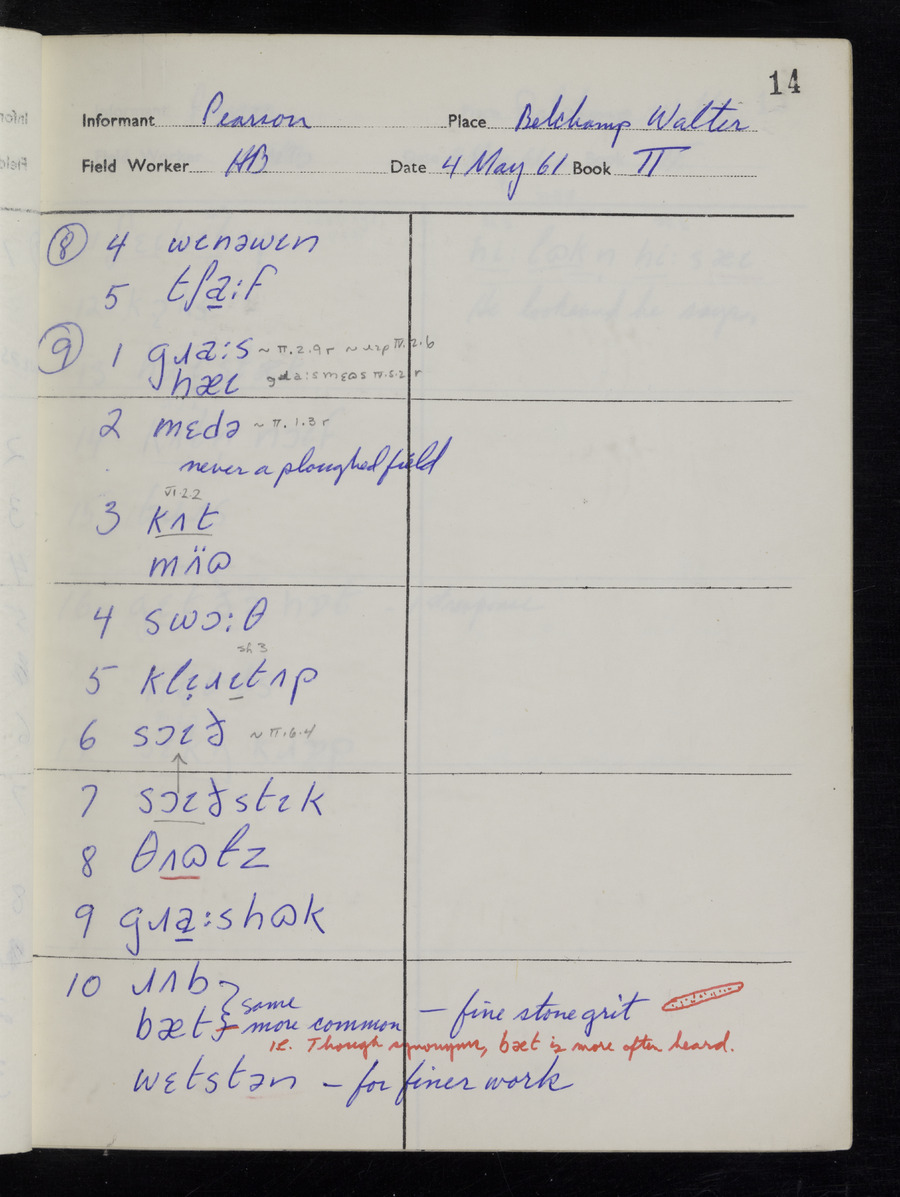 14
Informant Pearson Place Belchamp Walter
Field Worker HB Date 4 May 61 Book II
⑧ 4 wɛnəwɛn
5 tʃa̱ːf
⑨ 1 gɹaːs ~ II.2.9r ~ ɹɪp IV.2.6
hæɪ gɹaːsmɛɷs II.5.2r
2 mɛdə ~ II.1.3r
never a ploughed field
VI.2.2
3 kʌt
mʌ̈ɷ
4 swɔːθ
sh 3
5 klɪ̣ɹɪ̱tʌp
6 sɔɪð ~ II.6.4
7 sɔɪðstɪk
8 θʌɷtz
9 gɹa̱ːshɷk
10 ɹʌb
same
bæt more common – fine stone grit
ie. Though synonyms, bæt is more often heard.
wɛtstən – for finer work